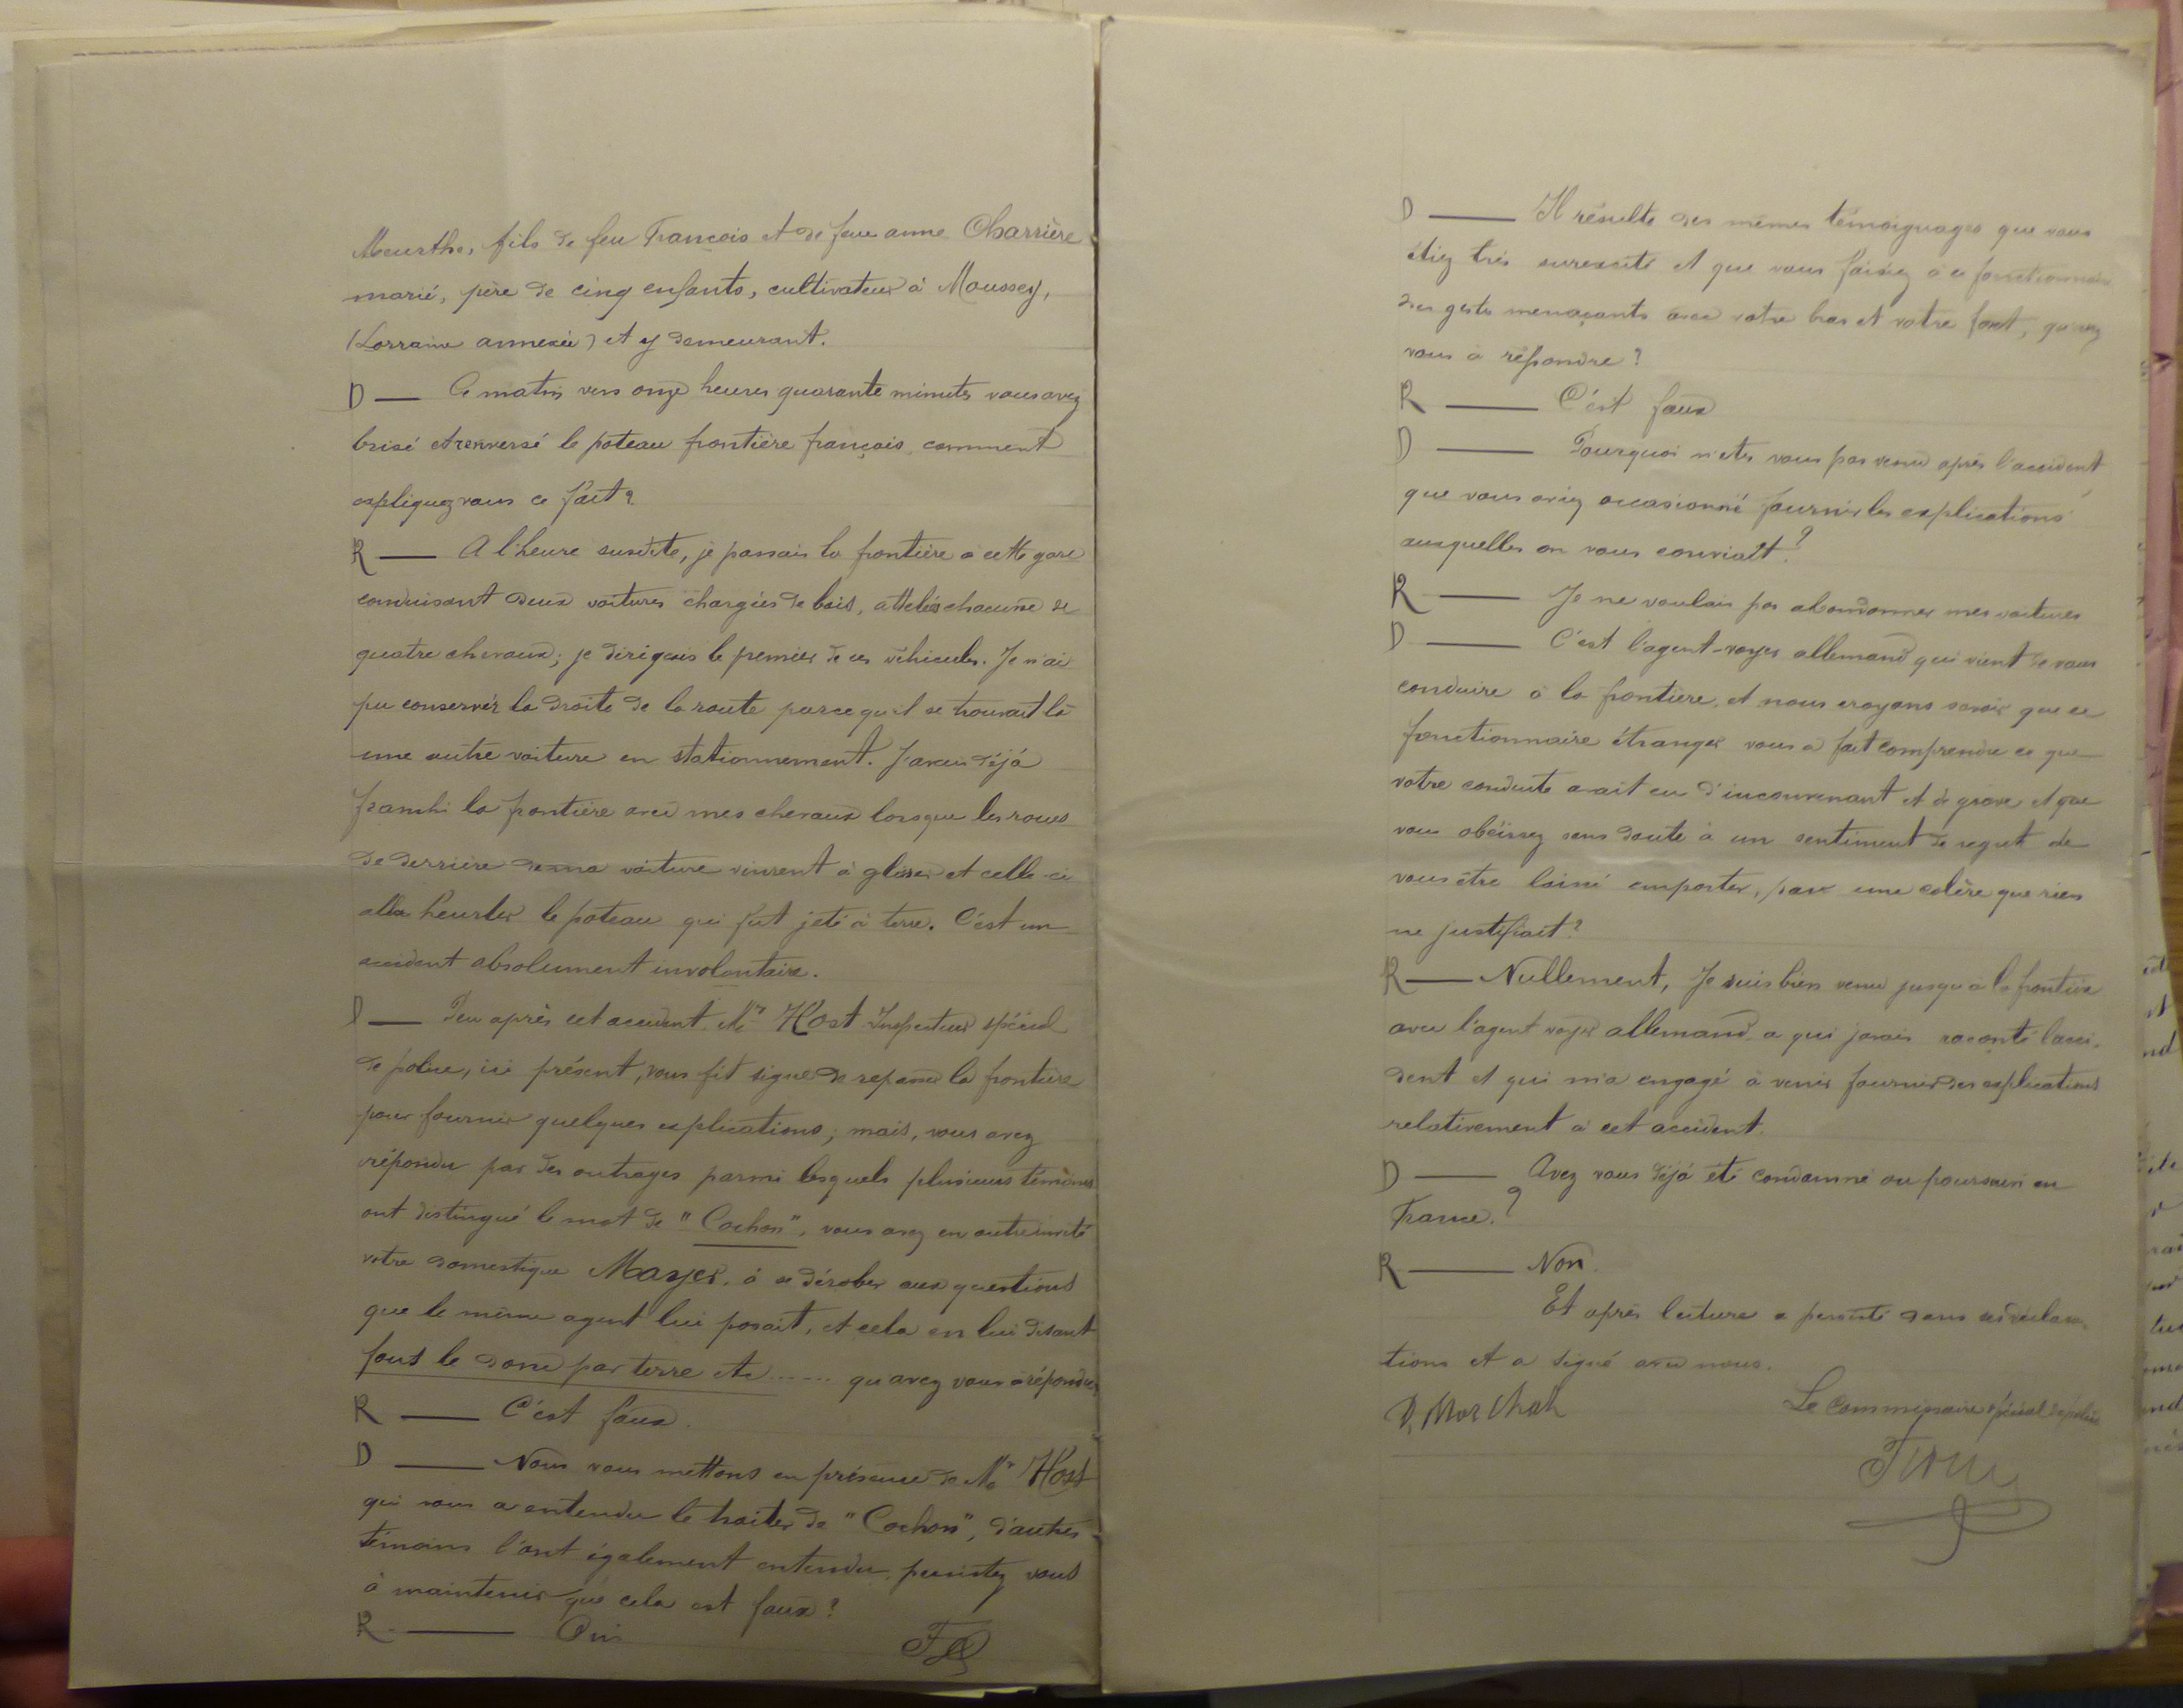 Meurthe, fils de feu François et de feue anne Charrière
marié, père de cinq enfants, cultivateur à Moussey,
(Lorraine annexée) et y demeurant.
D — Ce matin vers onze heures quarante minutes vous avez
brisé et renversé le poteau frontière français, comment
expliquez vous ce fait?
R — A l'heure susdite, je passais la frontière à cette gare
conduisant deux voitures chargées de bois, attelées chacune de
quatre chevaux; je dirigeais le premier de ces véhicules. Je n'ai
pu conserver la droite de la route parce qu'il se trouvait là
une autre voiture en stationnement. J'avais déjà
franchi la frontière avec mes chevaux lorsque les roues
de derrière de ma voiture vinrent à glisser et celle-ci
alla heurter le poteau qui fut jeté à terre. C'est un
accident absolument involontaire.
D — Peu après cet accident Mr Host Inspecteur spécial
de police, ici présent, vous fit signe de repasser la frontière
pour fournir quelques explications; mais, vous avez
répondu par des outrages parmi lesquels plusieurs témoins
ont distingué le mot de "Cochon", vous avez en outre invité
votre domestique Mayer, à se dérober aux questions
que le même agent lui posait, et cela en lui disant
fous le donc par terre etc ...... qu'avez vous à répondre
R — C'est faux.
D — Nous vous mettons en présence de Mr Host
qui vous a entendu le traiter de "Cochon", d'autres
témoins l'ont également entendu, persistez vous
à maintenir que cela est faux?
R — Oui
D — Il résulte des mêmes témoignages que vous
étiez très surexcité et que vous faisiez à ce fonctionnaire
des gestes menaçants avec votre bras et votre fouet, qu'avez
vous à répondre?
R — C'est faux
D — Pourquoi n'êtes vous pas venu après l'accident
que vous aviez occasionné fournir les explications
auxquelles on vous conviait?
R — Je ne voulais pas abandonner mes voitures
D — C'est l'agent-voyer allemand qui vient de vous
conduire à la frontière, et nous croyons savoir que ce
fonctionnaire étranger vous a fait comprendre ce que
votre conduite avait eu d'inconvenant et de grave et que
vous obéissez sans doute à un sentiment de regret de
vous être laissé emporter, par une colère que rien
ne justifiait?
R — Nullement, Je suis bien venu jusqu'à la frontière
avec l'agent voyer allemand a qui j'avais raconté l'acci-
dent et qui m'a engagé à venir fournir des explications
relativement à cet accident.
D — Avez vous déjà été condamné ou poursuivi en
France.?
R — Non.
Et après lecture a persisté dans ses déclara-
tions et a signé avec nous.
Le Commissaire spécial de police